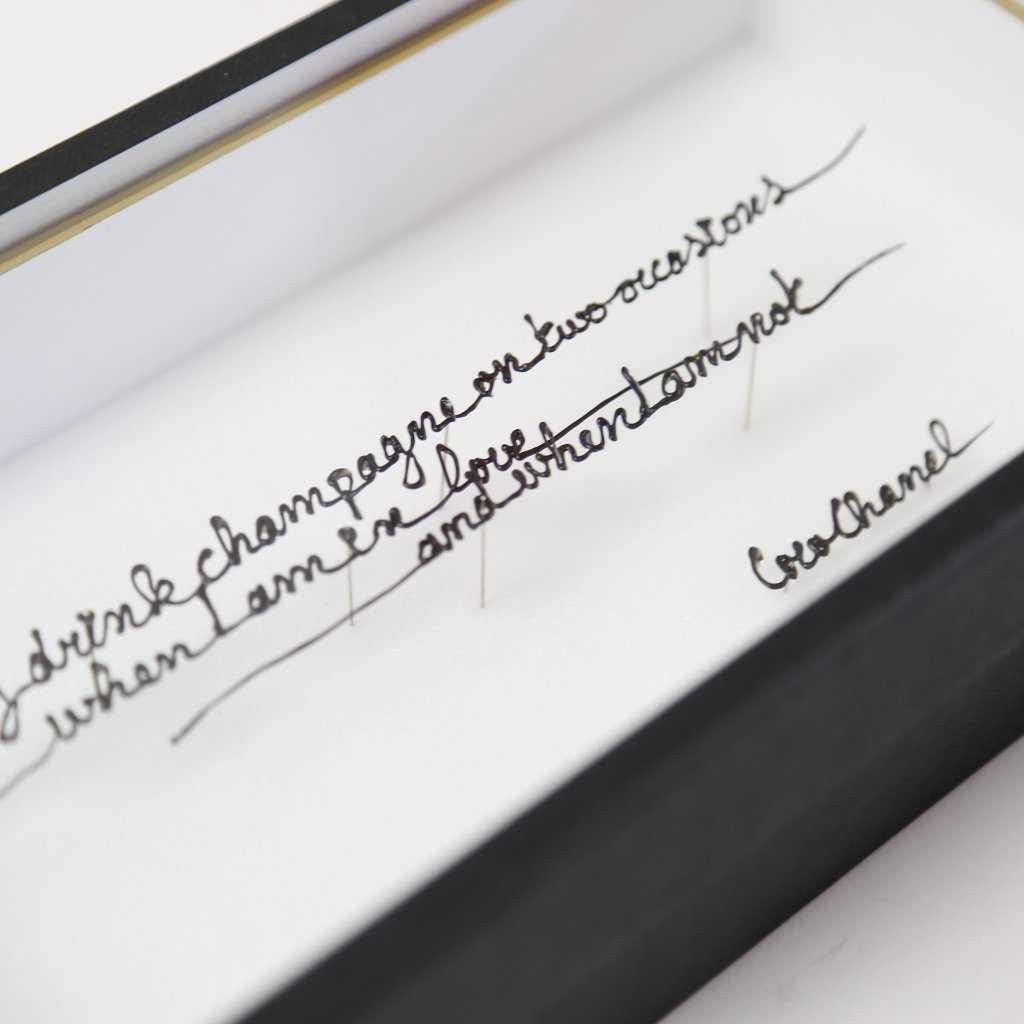 I drink champagne on two occasions
when I am in love
and when I am not
Coco Chanel